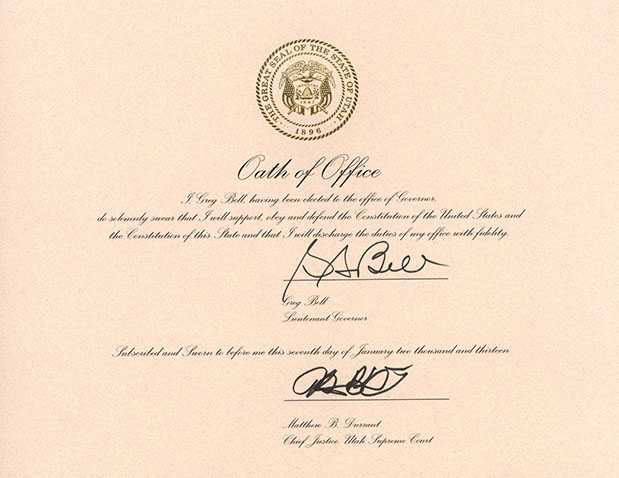 THE GREAT SEAL OF THE STATE OF UTAH
1847
1896
Oath of Office
I, Greg Bell, having been elected to the office of Governor,
do solemnly swear that I will support, obey and defend the Constitution of the United States and
the Constitution of this State and that I will discharge the duties of my office with fidelity.
Greg Bell
Lieutenant Governor
Subscribed and Sworn to before me this seventh day of January two thousand and thirteen
Matthew B. Durrant
Chief Justice, Utah Supreme Court